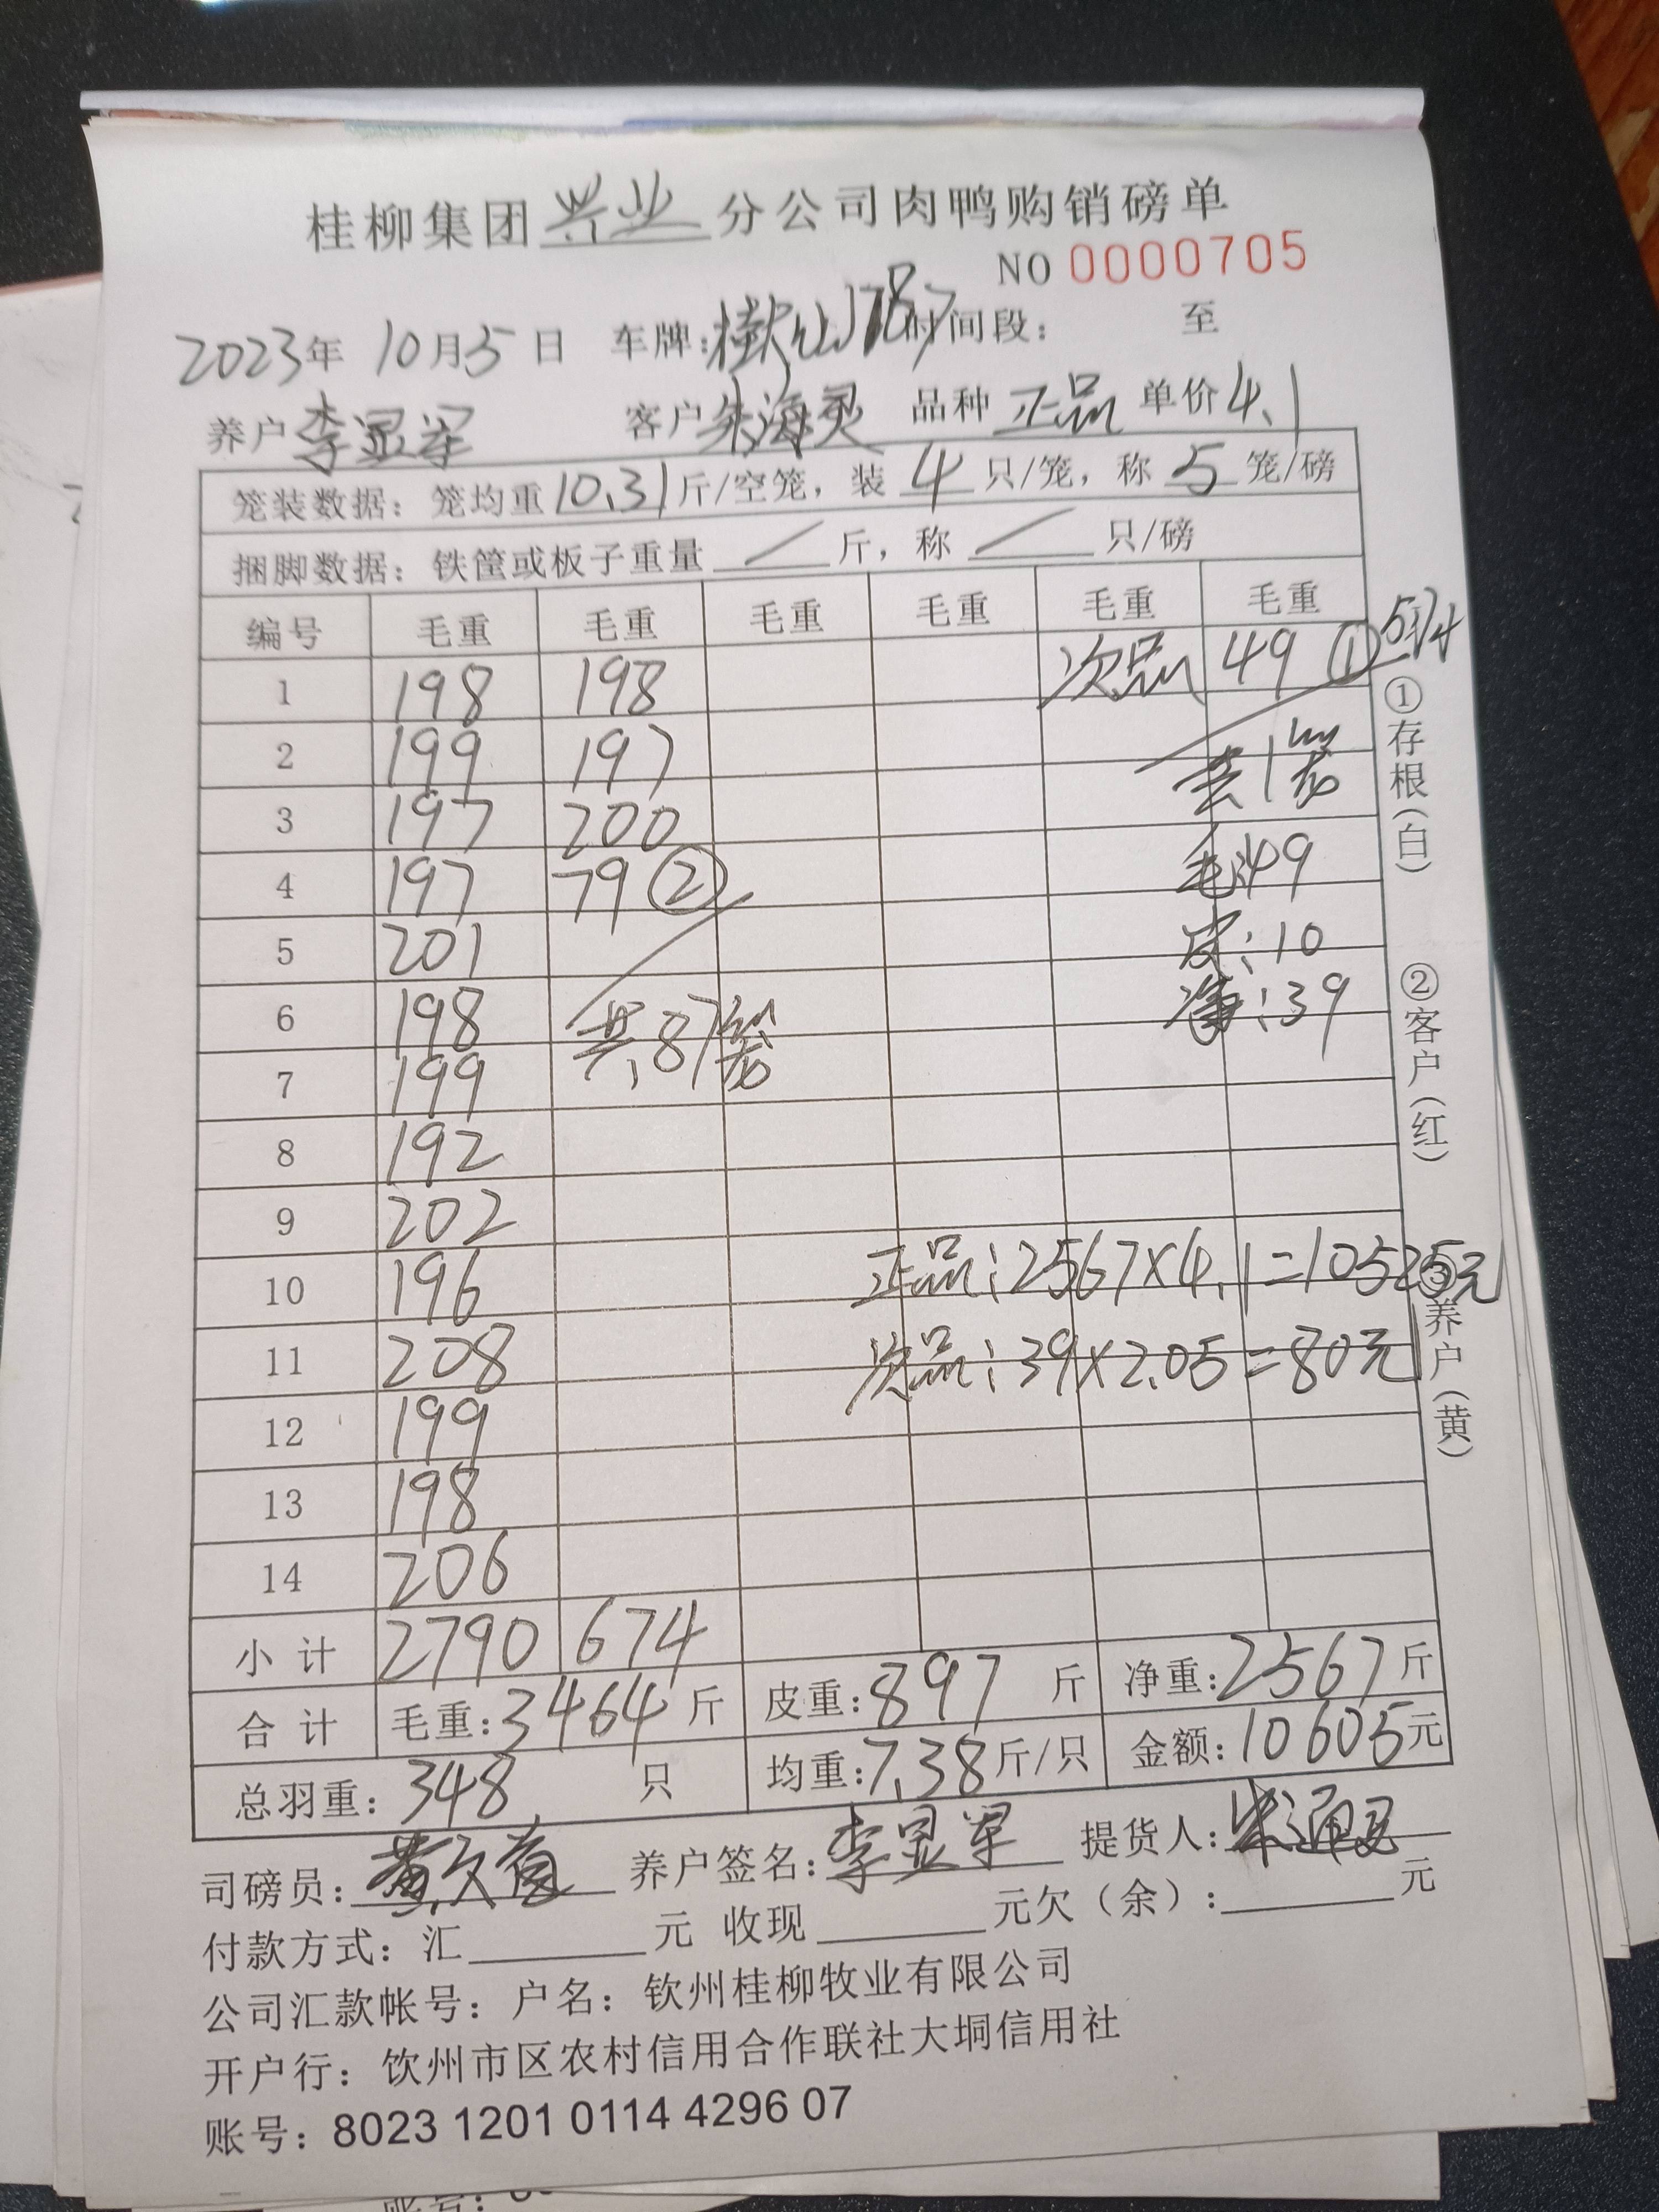 桂柳集团兴业分公司肉鸭购销磅单
NO 0000705
2023年 10月5日 车牌: 时间段: 至
养户李显军 客户朱海灵 品种 正品 单价4.1
笼装数据: 笼均重10.31斤/空笼, 装 4 只/笼, 称 5 笼/磅
捆脚数据: 铁筐或板子重量 / 斤, 称 / 只/磅
编号 毛重 毛重 毛重 毛重 毛重 毛重
1 198 198 次品 49 ① 5只
2 199 197 共1笼
3 197 200 毛:49
4 197 79 ②
5 201 皮:10
6 198 共87笼 净:39
7 199
8 192
9 202
10 196 正品:2567×4.1=10525元
11 208 次品:39×2.05=80元
12 199
13 198
14 206
小计 2790 674
合计 毛重:3464斤 皮重:897斤 净重:2567斤
总羽重:348只 均重:7.38斤/只 金额:10605元
司磅员: 养户签名:李显军 提货人:
付款方式: 汇 元 收现 元欠(余): 元
公司汇款帐号: 户名: 钦州桂柳牧业有限公司
开户行: 饮州市区农村信用合作联社大垌信用社
账号: 8023 1201 0114 4296 07
①存根(白) ②客户(红) ③养户(黄)